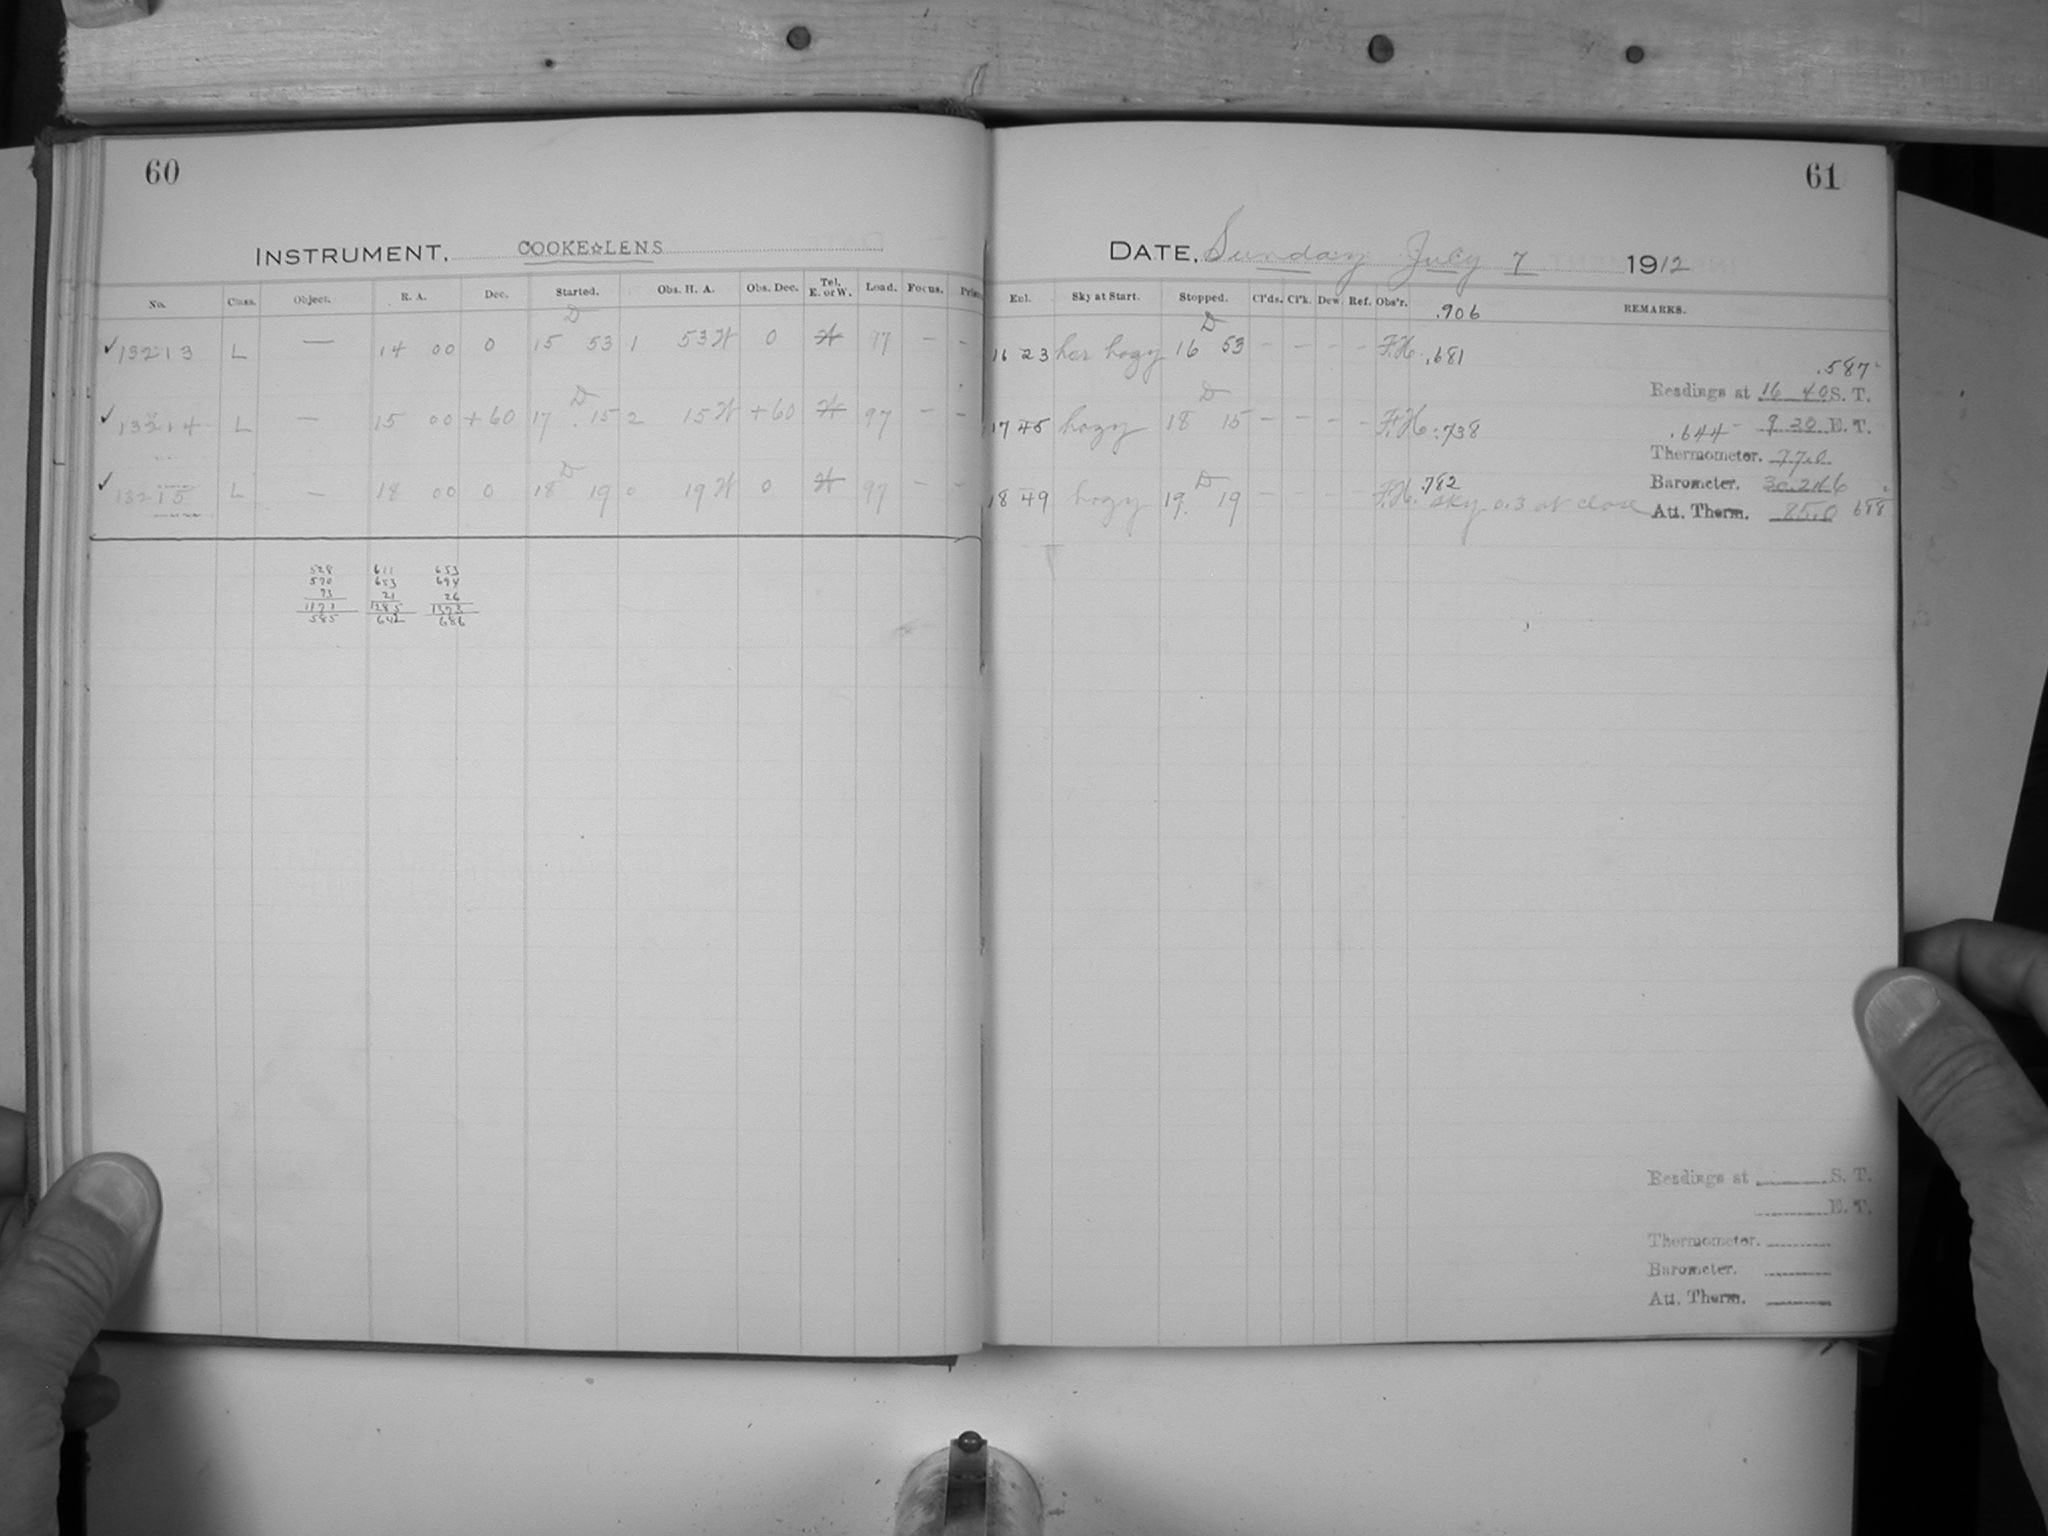 60
INSTRUMENT, COOKE☆LENS
No. Class. Object. R. A. Dec. Started. Obs. H. A. Obs. Dec. Tel. E. or W. Load. Focus.
D
✓13213 L — 14 00 0 15 53 1 53 W 0 W 97 – –
D
✓13214 L — 15 00 +60 17 15 2 15 W +60 W 97 – –
D
✓13215 L — 18 00 0 18 19 0 19 W 0 W 97 – –
528 611 653
570 653 694
73 21 26
1171 1285 1373
585 642 686
61
DATE, Sunday July 7 1912
Exl. Sky at Start. Stopped. Cl'ds. Cl'k. Dew. Ref. Obs'r. REMARKS.
.906
D
16 23 hazy 16 53 – – – – F.H. .681
.587
Readings at 16 40 S. T.
D
17 45 hazy 18 15 – – – – F.H. .738
.644 9 20 E. T.
Thermometer. 77.0
D
18 49 hazy 19 19 – – – – F.H. .782 Sky 0.3 at close
Barometer.
Att. Therm. 85.0 688
Readings at S. T.
E. T.
Thermometer.
Barometer.
Att. Therm.